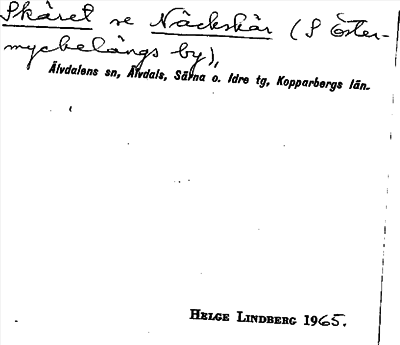 Skåret se Näckskär (S Öster-
myckelängs by),
Älvdalens sn, Älvdals, Särna o. Idre tg, Kopparbergs län.
HELGE LINDBERG 1965.